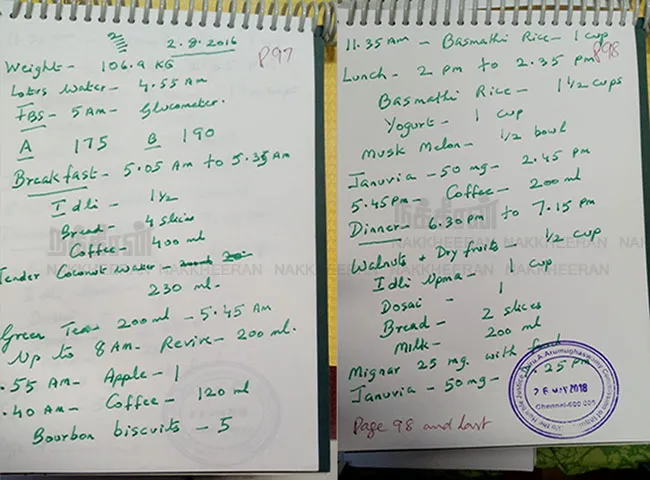 2
2.8.2016
P97
Weight - 106.9 KG
Lotus Water - 4.55 AM
FBS - 5 AM - Glucometer.
A 175 B 190
Breakfast - 5.05 AM to 5.35 AM
Idli - 1 1/2
Bread - 4 slices
Coffee - 400 ml
Tender Coconut Water -
230 ml -
Green Tea 200 ml - 5.45 AM
Up to 8 AM - Revive - 200 ml.
.55 AM - Apple - 1
.40 AM - Coffee - 120 ml
Bourbon biscuits - 5
நக்கீரன்
NAKKHEERAN NAKKHEERAN NAKKHEERAN
11.35 AM - Basmathi Rice - 1 cup
P98
Lunch - 2 PM to 2.35 PM
Basmathi Rice - 1 1/2 cups
Yogurt - 1 cup
Musk Melon - 1/2 bowl
Januvia - 50 mg - 2.45 PM
5.45 PM - Coffee - 200 ml
Dinner - 6.30 PM to 7.15 PM
Walnuts + Dry fruits - 1/2 cup
Idli Upma - 1 cup
Dosai - 1
Bread - 2 slices
Milk - 200 ml
Mignar 25 mg. with food
Januvia - 50 mg - .25 PM
Page 98 and last
நக்கீரன்
NAKKHEERAN NAKKHEERAN NAK
Hon'ble Justice Thiru.A.Arumughaswamy Commission of Inquiry
2018
Chennai-600 005